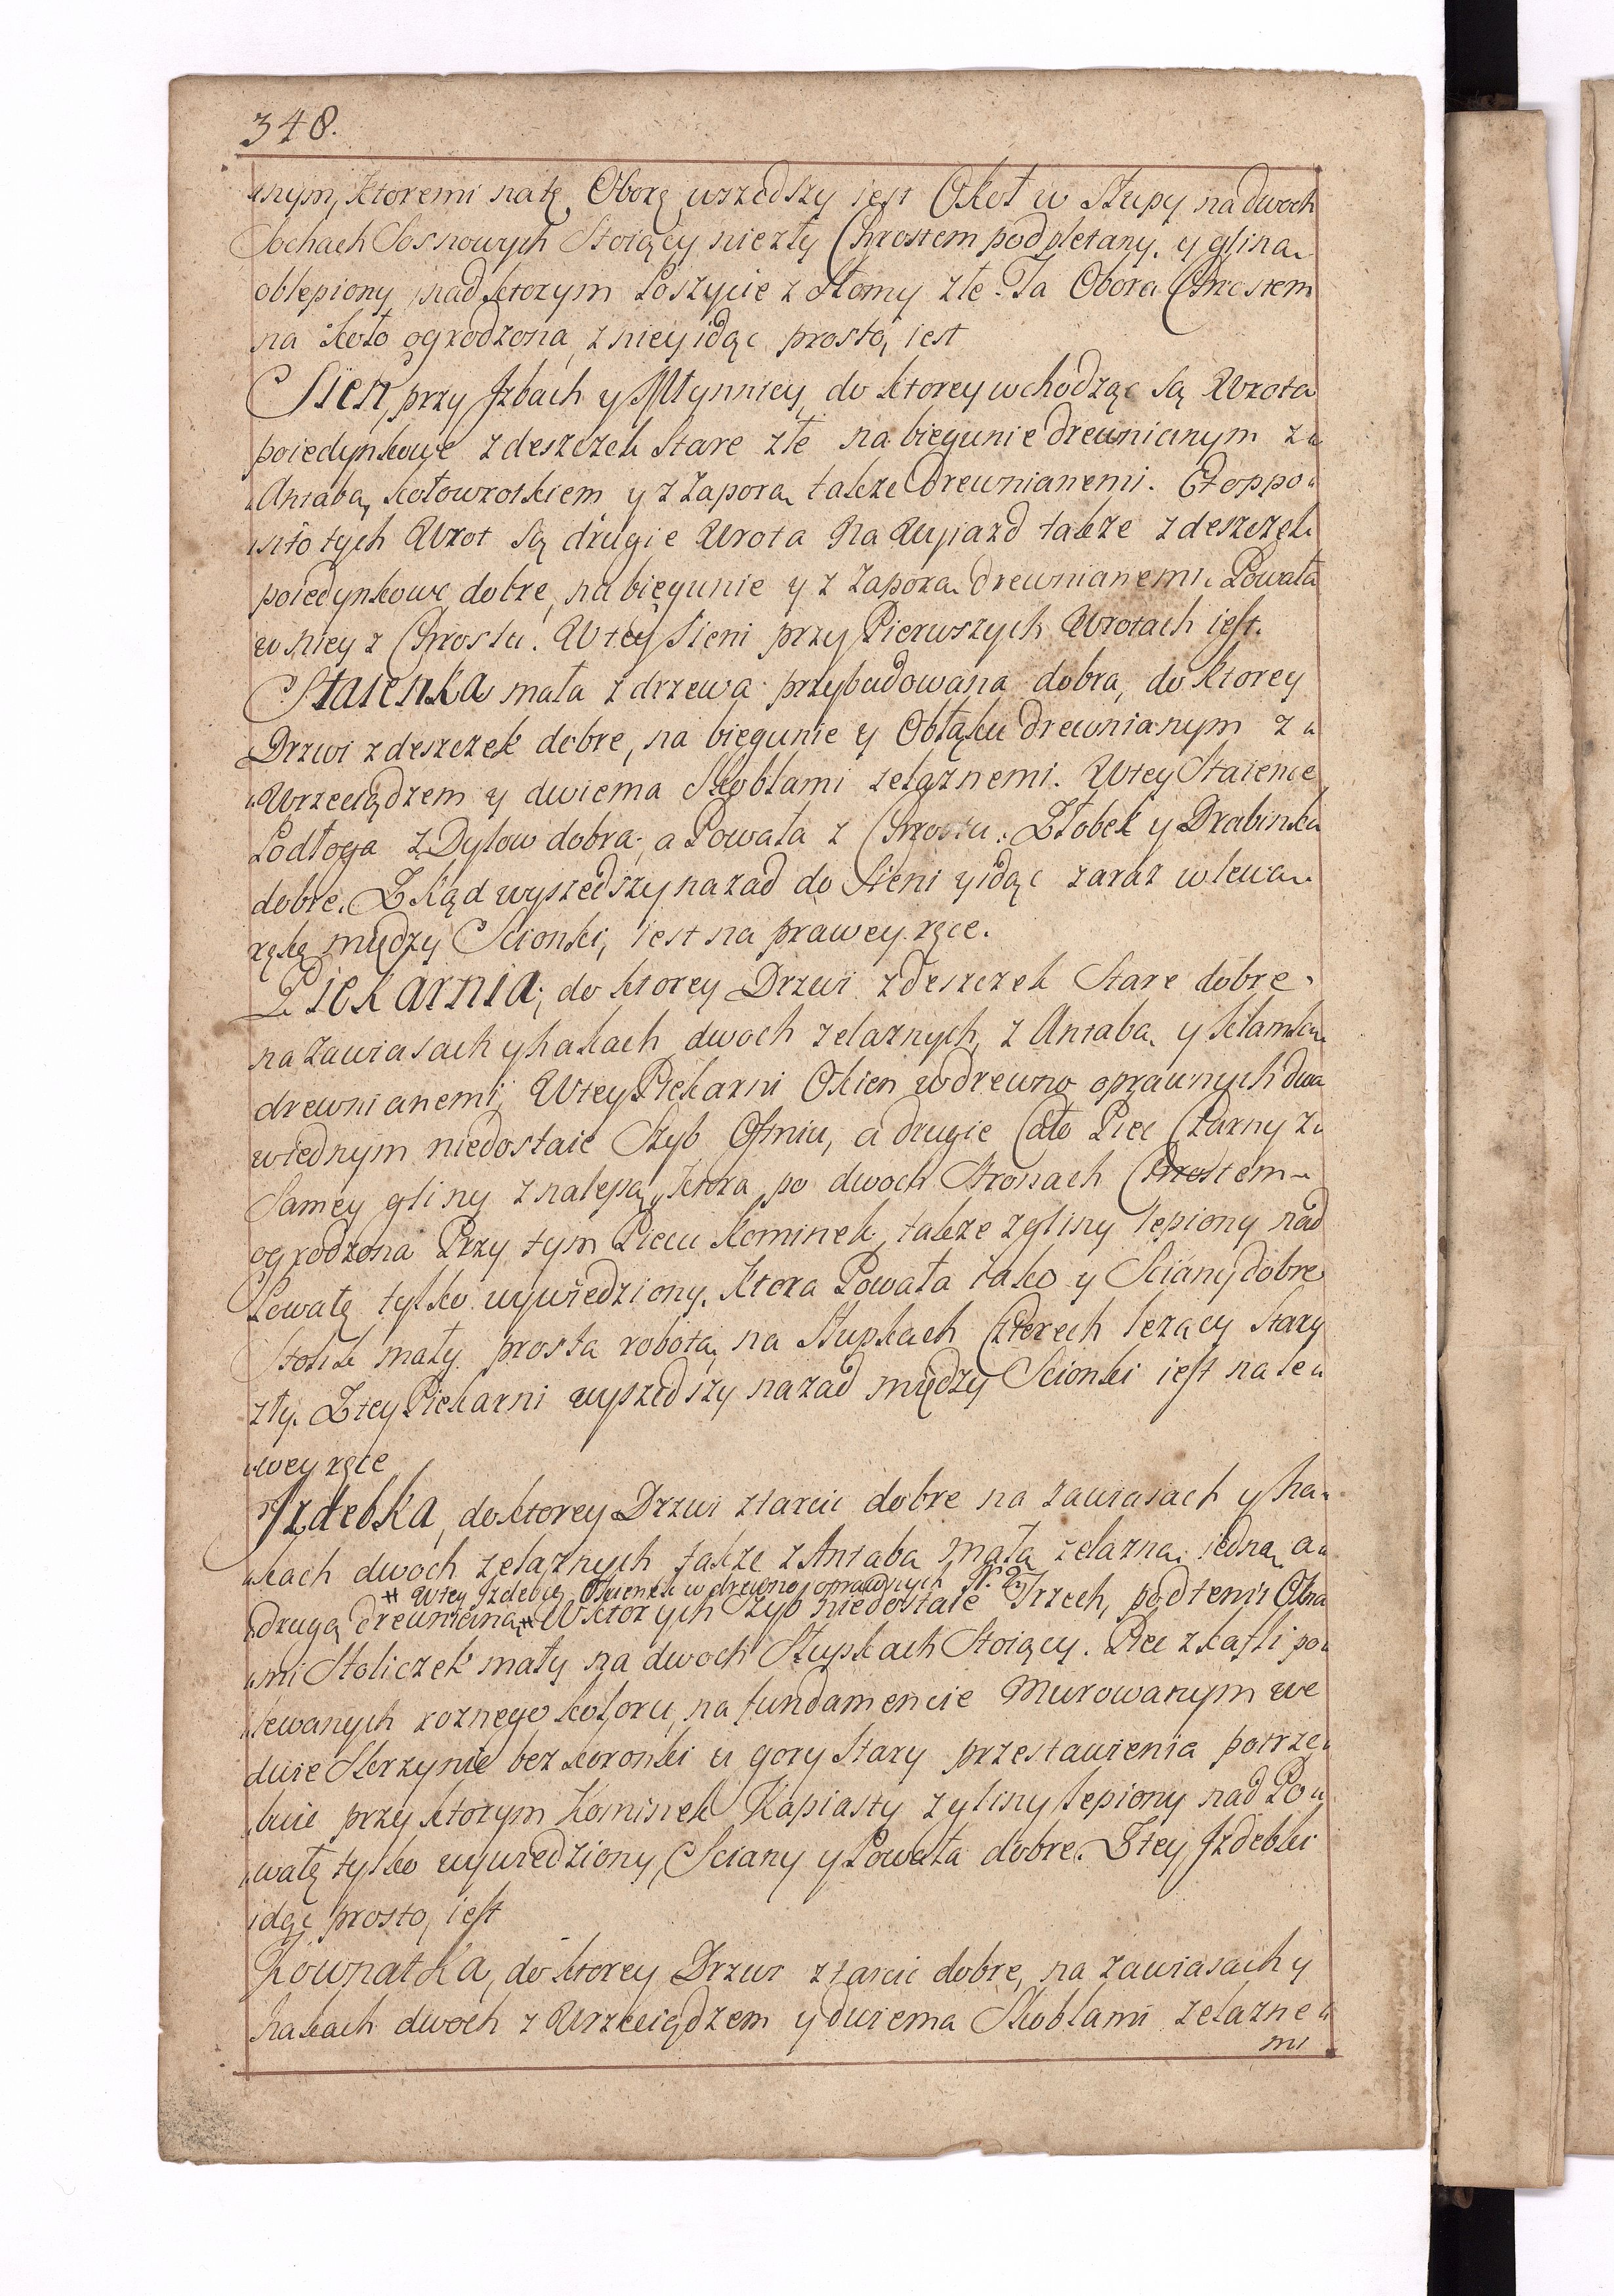 348.
nym, ktoremi na tę Oborę wszedszy iest Okoł w Słupy na dwoch
Sochach Sosnowych Stoiący niezły Chrostem podpletany, y gliną
oblepiony nad ktorym Poszycie z Słomy złe. Ta Obora Chrostem
na koło ogrodzona, z niey idąc prosto, iest
Sien, przy Jzbach y Młynnicy, do ktorey wchodząc są Wrota
poiedynkowe z deszczek Stare złe na biegunie drewnianym z
Antabą, kołowrotkiem y z Zaporą także Drewnianemi. Et oppo
sito tych Wrot są drugie Wrota na Wyiazd także z deszczek
poiedynkowe dobre, na biegunie y z Zaporą drewnianemi. Powała
w niey z Chrostu. W tey Sieni przy Pierwszych Wrotach iest.
Staienka mała z drzewa przybudowana dobra, do ktorey
Drzwi z deszczek dobre, na biegunie y Obłąku drewnianym z
Wrzeciądzem y dwiema Skoblami żelaznemi. W tey Staience
Podłoga z Dylow dobra, a Powała z Chrostu. Złobek y Drabinka
dobre. Z kąd wyszedszy nazad do Sieni y idąc zaraz w lewą
rękę między Scionki, iest na prawey ręce.
Piekarnia, do ktorey Drzwi z deszczek Stare dobre
na Zawiasach y hakach dwoch zelaznych, z Antabą y klamką
drewnianemi, W tey Piekarni Okien w drewno oprawnych dwa
w iednym niedostaie Szyb Ośmiu, a drugie Całe Piec Czarny z
Samey gliny z nalepą, ktora po dwoch Stronach Chrostem
ogrodzona Przy tym Piecu Kominek, także z gliny lepiony nad
Powałę tylko wywiedziony. Ktora Powała iako y Sciany dobre
Stolik mały prostą robotą, na Słupkach Czterech leżący Stary
zły. Z tey Piekarni wyszedszy nazad między Scionki iest na le
wey ręce
Jzdebka, do ktorey Drzwi z tarcic dobre na zawiasach y ha
kach dwoch zelaznych także z Antabą małą zelazną iedną, a
# W tey Jzdebce Okienek w drewno oprawnych Nr. 2.
drugą drewnianą # W ktorych Szyb niedostaie Trzech, pod temi Okna
mi Stoliczek mały na dwoch Słupkach Stoiący. Piec z kafli po
lewanych roznego koloru, na fundamencie Murowanym we
dwie Skrzynie bez koronki u gory Stary przestawienia potrze
buie przy ktorym Kominek Kapiasty z gliny lepiony nad Po
wałę tylko wywiedziony, Sciany y Powała dobre. Z tey Jzdebki
idąc prosto, iest
Kownatka, do ktorey Drzwi z tarcic dobre, na Zawiasach y
hakach dwoch z Wrzeciądzem y dwiema Skoblami zelazne
mi